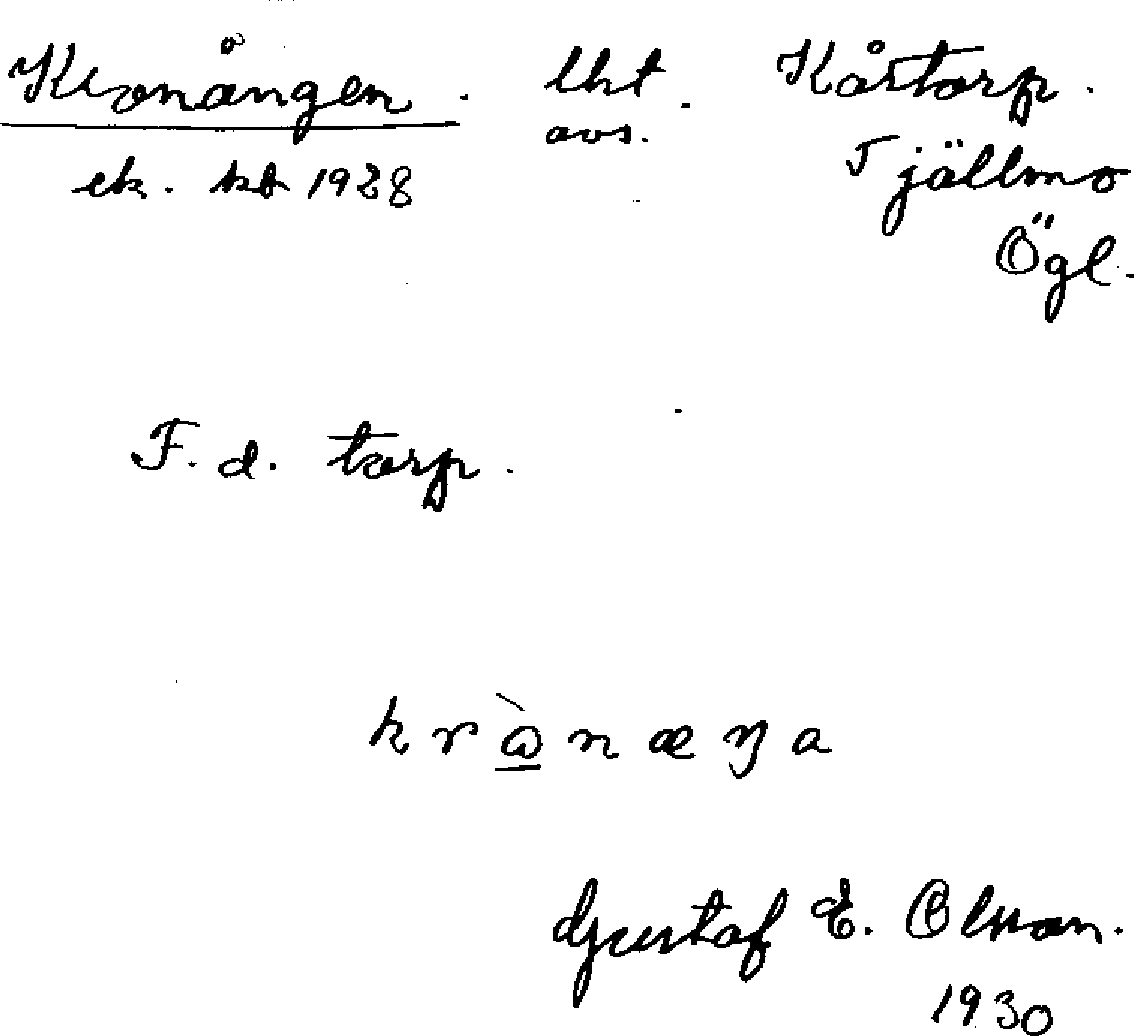 Kronängen. lht. Kårtorp.
avs.
ek. kt 1928 Tjällmo
Ögl.
F. d. torp.
krὼnæŋa
Gustaf E. Olsson.
1930